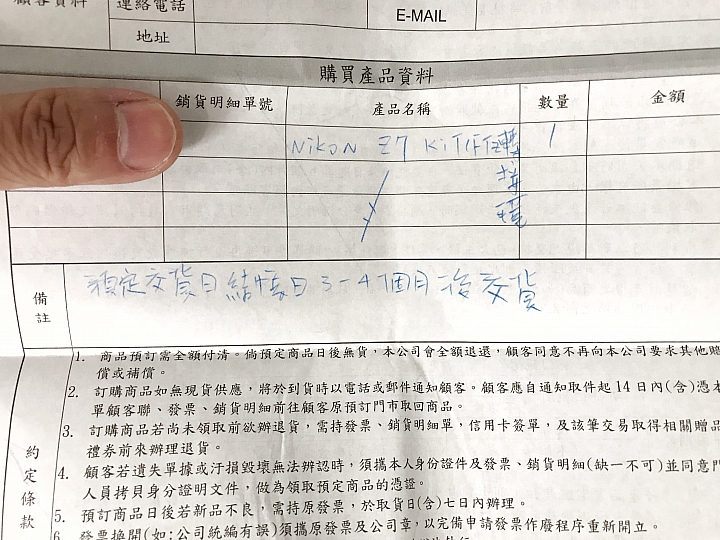 顧客資料
連絡電話
E-MAIL
地址
購買產品資料
銷貨明細單號 產品名稱 數量 金額
NiKON Z7 KiT(FTZ轉接環 1
備註
預定交貨日結帳日3-4個月後交貨
約定條款
1. 商品預訂需全額付清。倘預定商品日後無貨,本公司會全額退還,顧客同意不再向本公司要求其他賠
償或補償。
2. 訂購商品如無現貨供應,將於到貨時以電話或郵件通知顧客。顧客應自通知取件起14日內(含)憑本
單顧客聯、發票、銷貨明細前往顧客原預訂門市取回商品。
3. 訂購商品若尚未領取前欲辦退貨,需持發票、銷貨明細單,信用卡簽單,及該筆交易取得相關贈品
禮券前來辦理退貨。
4. 顧客若遺失單據或汙損毀壞無法辨認時,須攜本人身份證件及發票、銷貨明細(缺一不可)並同意門
人員拷貝身分證明文件,做為領取預定商品的憑證。
5. 預訂商品日後若新品不良,需持原發票,於取貨日(含)七日內辦理。
6. 發票換開(如:公司統編有誤)須攜原發票及公司章,以完備申請發票作廢程序重新開立。